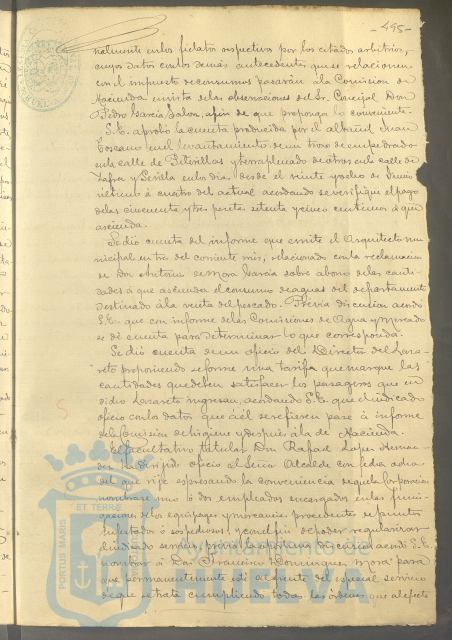 -495-
nalmente en los fielatos respectivos por los citados arbitrios,
cuyos datos con los demás antecedentes que se relacionen
con el impuesto de consumos pasarán á la Comision de
Hacienda en vista de las observaciones del Sr. Concejal Don
Pedro Garcia Jalon, afin de que proponga lo conveniente.
S.E. aprobó la cuenta producida por el albañil Juan
Toscano en el levantamiento de un trozo de empedrado
en la calle de y terraplenado de otros en la calle de
Zafra y Sevilla en los dias desde el veinte y ocho de Junio
último á cuatro del actual acordando se verifique el pago
de las cincuenta y tres pesetas setenta y cinco centimos á que
asciende.
Se dió cuenta del informe que emite el Arquitecto mu-
nicipal en tres del corriente mes, relacionado con la reclamacion
de Don Antonio de Mora Garcia sobre abono de las canti-
dades á que asciende el consumo de aguas del departamento
destinado á la venta del pescado. Prévia discusion acordó
S.E. que con informe de las Comisiones de Agua y Mercado
se dé cuenta para determinar lo que corresponda.
Se dió cuenta de un oficio del Director del Laza-
reto proponiendo se forme una tarifa que marque las
cantidades que deben satisfacer los pasageros que en
dicho Lazareto ingresan, acordando S.E. que el indicado
oficio con los datos que á él se refieren pase á informe
de la Comision de higiene y despues á la de Hacienda.
El facultativo titular Don Rafael Lopez Hernan-
dez ha dirijido oficio al Señor Alcalde con fecha ocho
del que rije espresando la conveniencia de que la Corporacion
nombrase uno ó dos empleados encargados en las fumi-
gaciones de los equipages y mercancias procedentes de puntos
infestados ó sospechosos y con el fin de poder regularizar
el indicado servicio, previa la oportuna discusion acordó S.E.
nombrar á Don Francisco Dominguez Mora para
que permanentemente esté al frente del especial servicio
de que se trata cumpliendo todas las órdenes que al efecto
ET TERRE
PORTUS MARIS
Ayuntamiento de
HUELVA